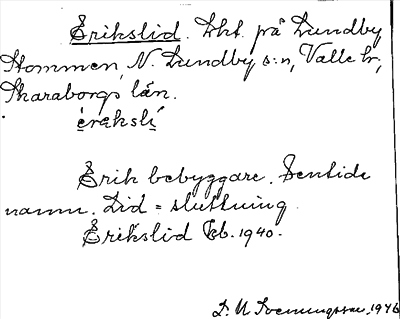 Erikslid. Lht. på Lundby
Stommen, N. Lundby s:n, Valle hr,
Skaraborgs län.
èrəkslí
Erik bebyggare. Sentida
namn. Lid = sluttning.
Erikslid Eb. 1940.
D. U. Svenungsson, 1946